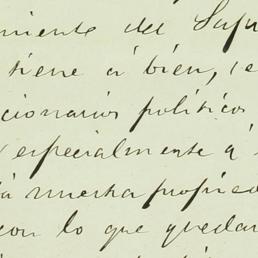 miento del Supr
tiene á bien, se
cionarios políticos
especialmente á
á nuestra propied
con lo que quedar